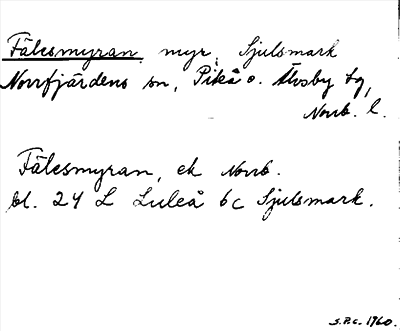 Fälesmyran, myr, Sjulsmark
Norrfjärdens sn, Piteå o. Älvsby tg,
Norrb. l.
Fälesmyran, ek Norrb.
bl. 24 L Luleå 6c Sjulsmark.
S.P.C. 1960.